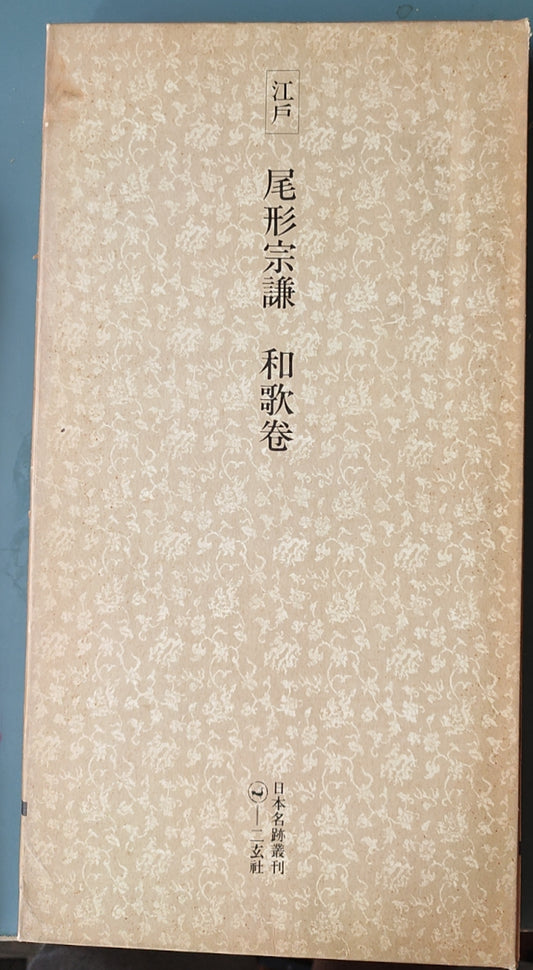 江戸
尾形宗謙　和歌卷
日本名跡叢刊
二玄社